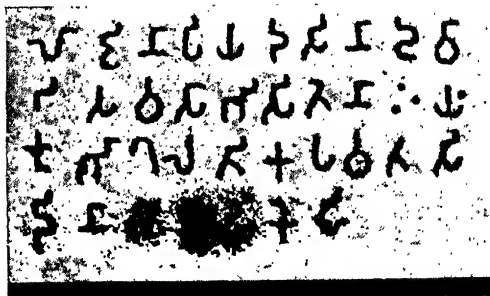 𑀮𑀸𑀚𑀺𑀦𑀸 𑀧𑀺𑀬𑀤𑀲𑀺𑀦𑀸 𑀤𑀼𑀯𑀸
𑀟𑀲𑀯𑀲𑀸𑀪𑀺𑀲𑀺𑀢𑁂𑀦𑀸 𑀇𑀬𑀁
𑀓𑀼𑀪𑀸 𑀔𑀮𑀢𑀺𑀓𑀧𑀯𑀢𑀲𑀺
𑀤𑀺𑀦𑀸 𑀓𑁂𑀳𑀺